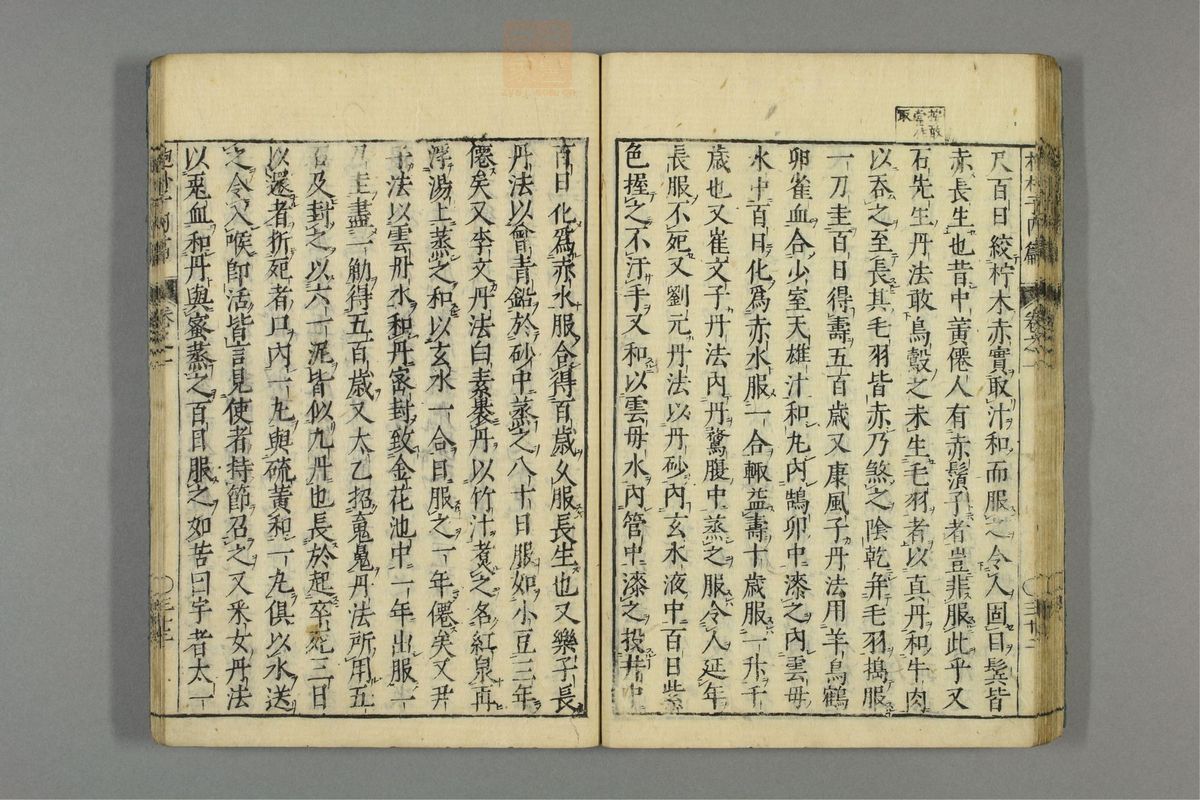 尺百日絞柠木赤實取汁和而服之令人固目鬢皆
赤長生也昔中黃僊人有赤鬚子者豈非服此乎又
石先生丹法敢鳥鷇之未生毛羽者以真丹和牛肉
以吞之至長其毛羽皆赤乃煞之陰乾幷毛羽搗服
一刀圭百日得壽五百歲又康風子丹法用羊烏鶴
卵雀血合少室天雄汁和丸內鵠卵中漆之內雲母
水中百日化爲赤水服一合輙益壽十歲服一升千
歲也又崔文子丹法內丹鶩腹中蒸之服令人延年
長服不死又劉元丹法以丹砂內玄水液中百日紫
色握之不汙手又和以雲母水內管中漆之投井中
百日化爲赤水服合得百歲久服長生也又樂子長
丹法以曾青鉛於砂中蒸之八十日服如小豆三年
僊矣又李文丹法白素裹丹以竹汁煮之名紅泉再
浮湯上蒸之和以玄水一合日服之一年僊矣又尹
子法以雲母水和丹密封致金花池中一年出服一
刀圭盡一觔得五百歲又太乙招䰟魄丹法所用五
石及封之以六一泥皆似九丹也長於起卒死三日
以還者折死者口內一丸與硫黃和一丸俱以水送
之令入喉即活皆言見使者持節召之又釆女丹法
以兎血和丹與蜜蒸之百日服之如苦曰字者太一